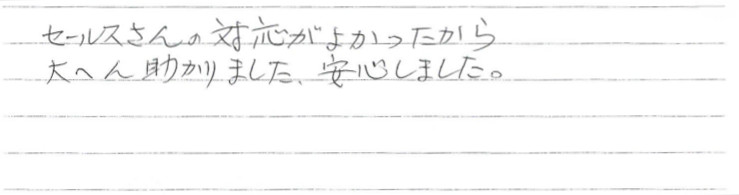 セールスさんの対応がよかったから
大へん助かりました、安心しました。